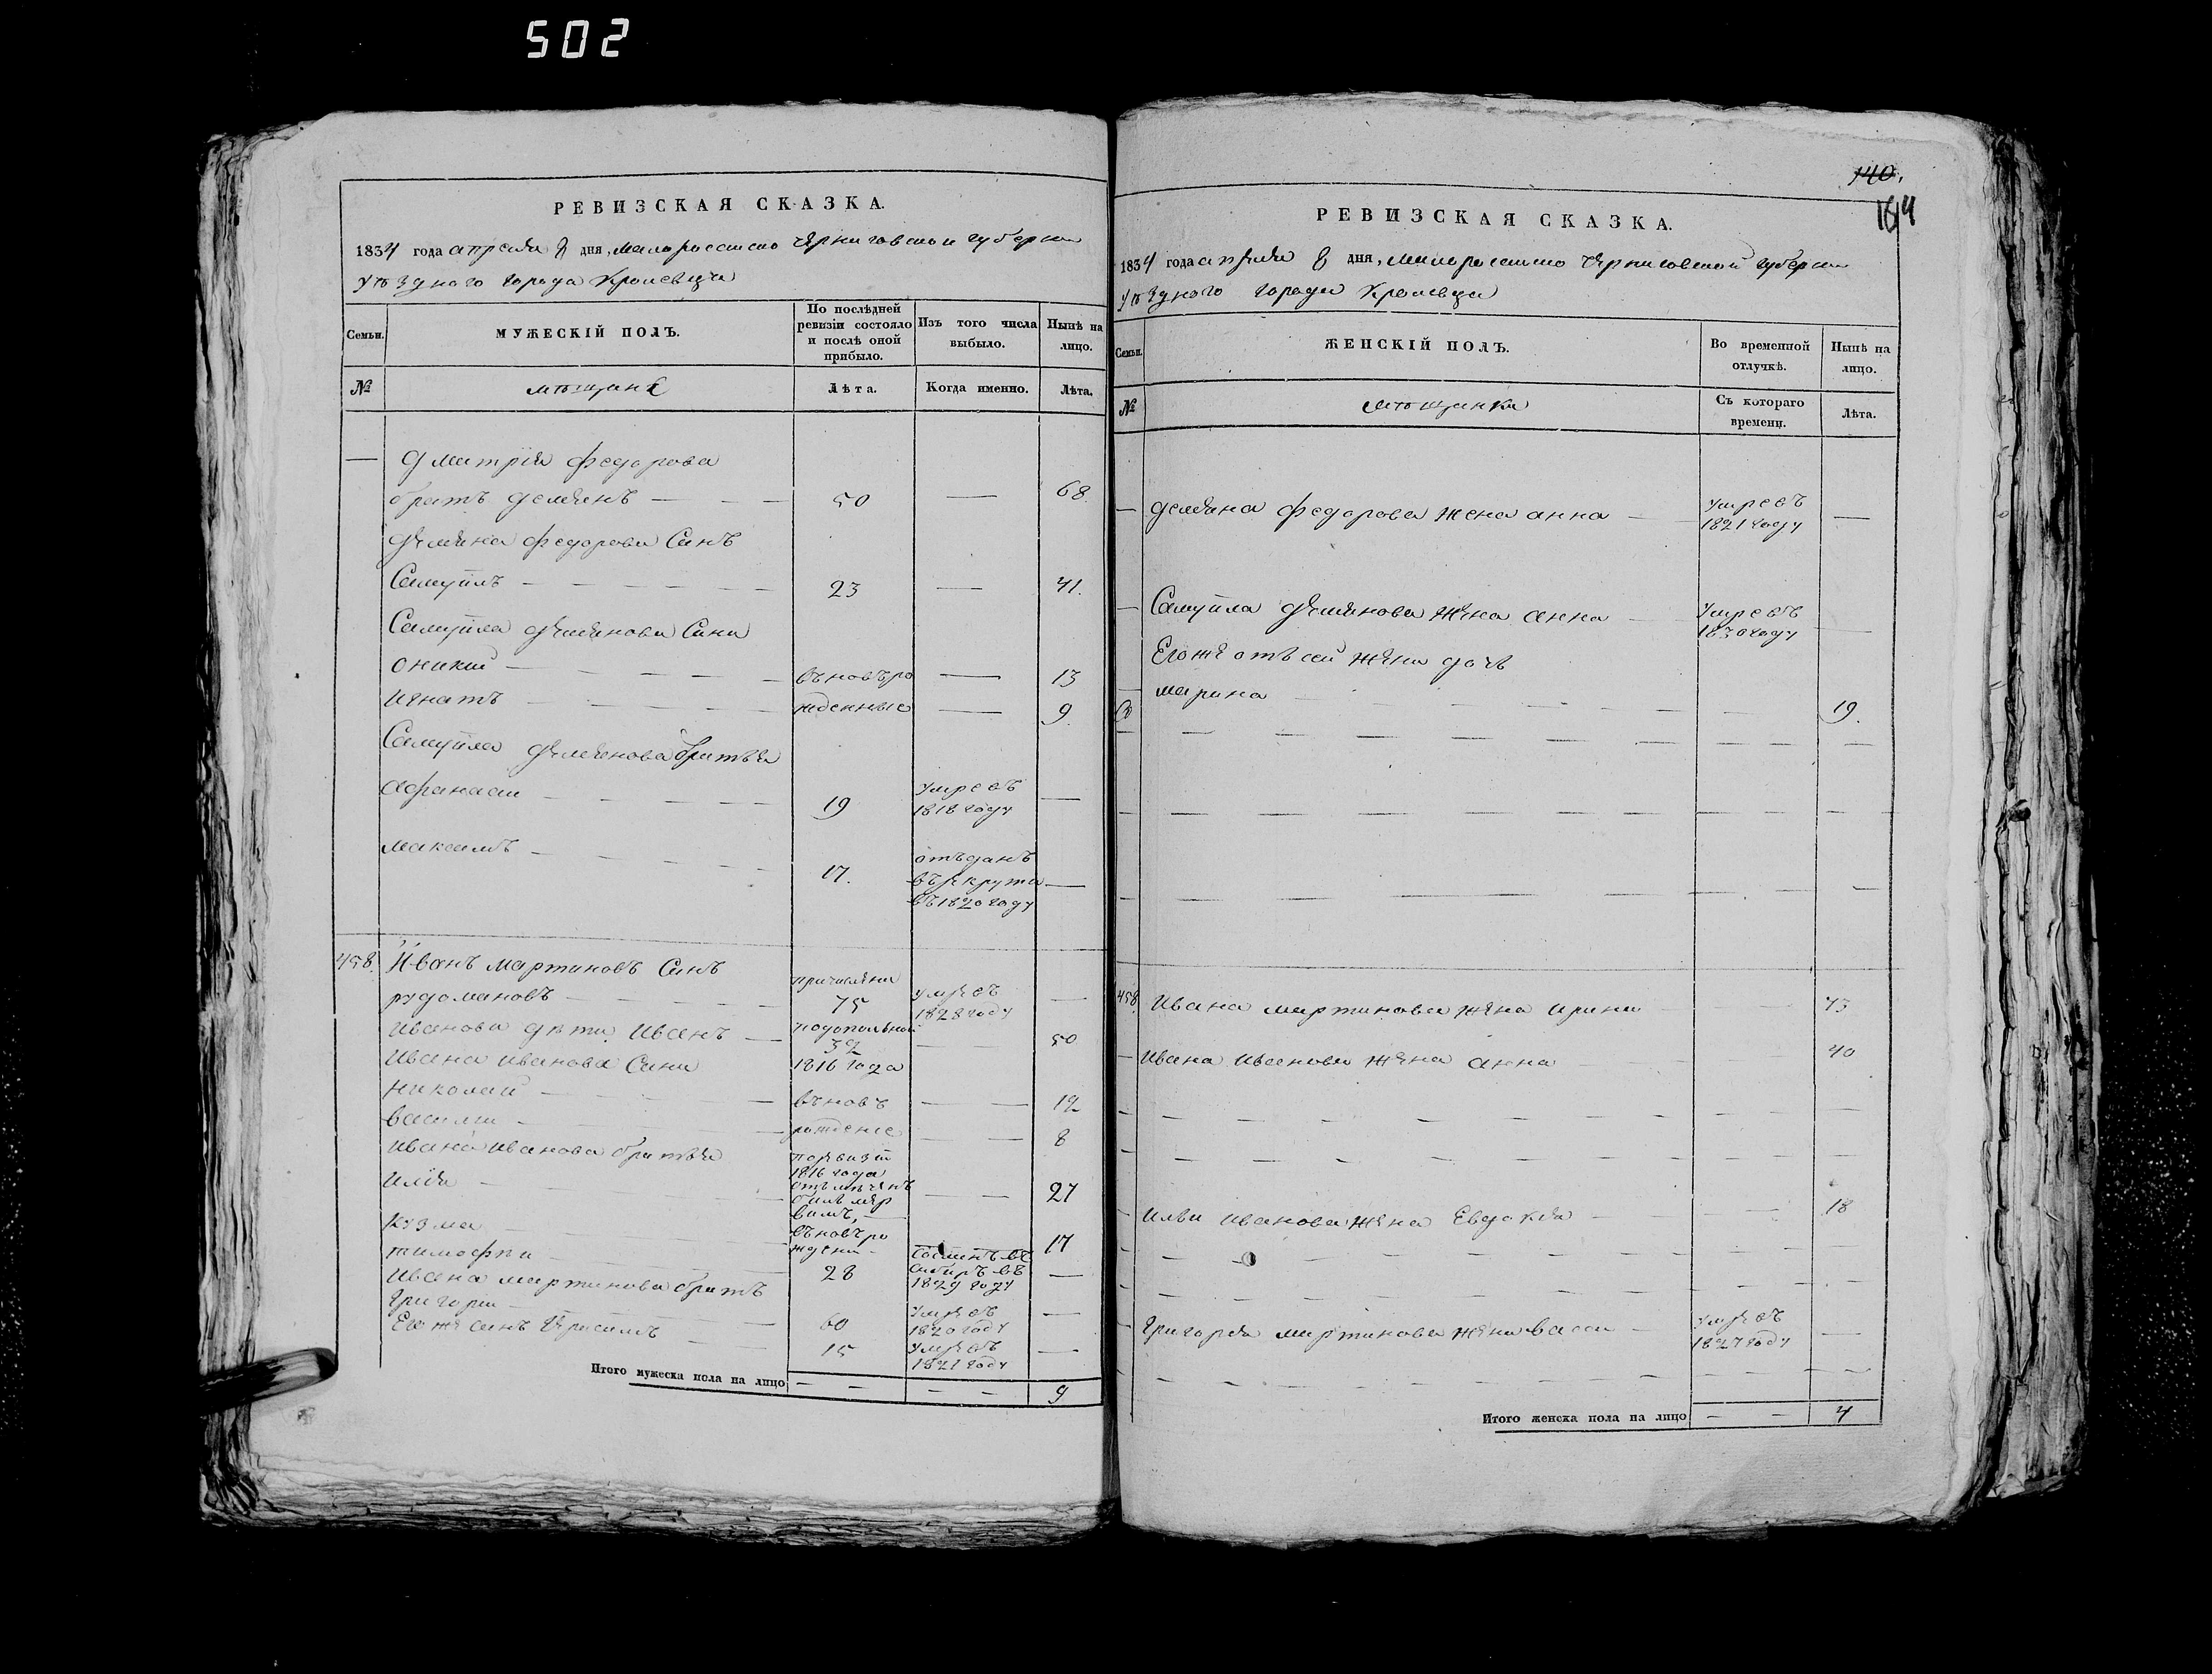 502
РЕВИЗСКАЯ СКАЗКА.
1834 года апреля 8 дня, малороссийско Черниговской губернии
уѣзднаго города Кролевца
Семьи.
МУЖЕСКІЙ ПОЛЪ.
По послѣдней ревизіи состояло и послѣ оной прибыло.
Изъ того числа выбыло.
Нынѣ на лицо.
№
мѣщане
Лѣта.
Когда именно.
Лѣта.
— Дматрія федорова
братъ демянъ — 50 — 68.
демяна федорова Синъ
Самуйлъ — 23 — 41.
Самуйла демянова Сини
оникий — въновъро — 13
игнатъ — жденные — 9.
Самуйла демянова братья
Афанасии — 19 умревъ 1818 году —
максимъ — 17. отъданъ въ рекрута въ 1820 году —
458. Иванъ мартиновъ Синъ
рудомановъ — причислени 75 умревъ 1828 году —
Иванови дети Иванъ — 32 — 50
Ивана иванова Сини 1816 года
николай — въновъ — 12
василии — рождение — 8
ивана иванова братья
илія — поревизіи 1816 года отъмеченъ билъ мер вимъ, — 27
кузма — въновъро ждени — 17
тимофеи — 28 Сосланъ въ Сибиръ въ 1829 году —
Ивана мартинова братъ
Григории — 60 умревъ 1820 году —
Его же синъ Герасимъ — 15 умревъ 1821 году —
Итого мужеска пола на лицо — — — — 9
140.
164
РЕВИЗСКАЯ СКАЗКА.
1834 года апреля 8 дня, малороссийско Черниговской губернии
уѣзднаго города Кролевца
Семьи.
ЖЕНСКІЙ ПОЛЪ.
Во временной отлучкѣ.
Нынѣ на лицо.
№
мѣщанки
Съ котораго времени.
Лѣта.
— демяна федорова жена анна — умревъ 1821 году —
— Самуйла демянова жена анна — умревъ 1830 году —
Егоже отъ сей жени дочь
марина — 19.
458. Ивана мартинова жена ирина — 73
— Ивана иванова жена анна — 40
— ильи иванова жена Евдокия — 18
— Григорея мартинова жена васса — умревъ 1827 году —
Итого женска пола на лицо — — 4